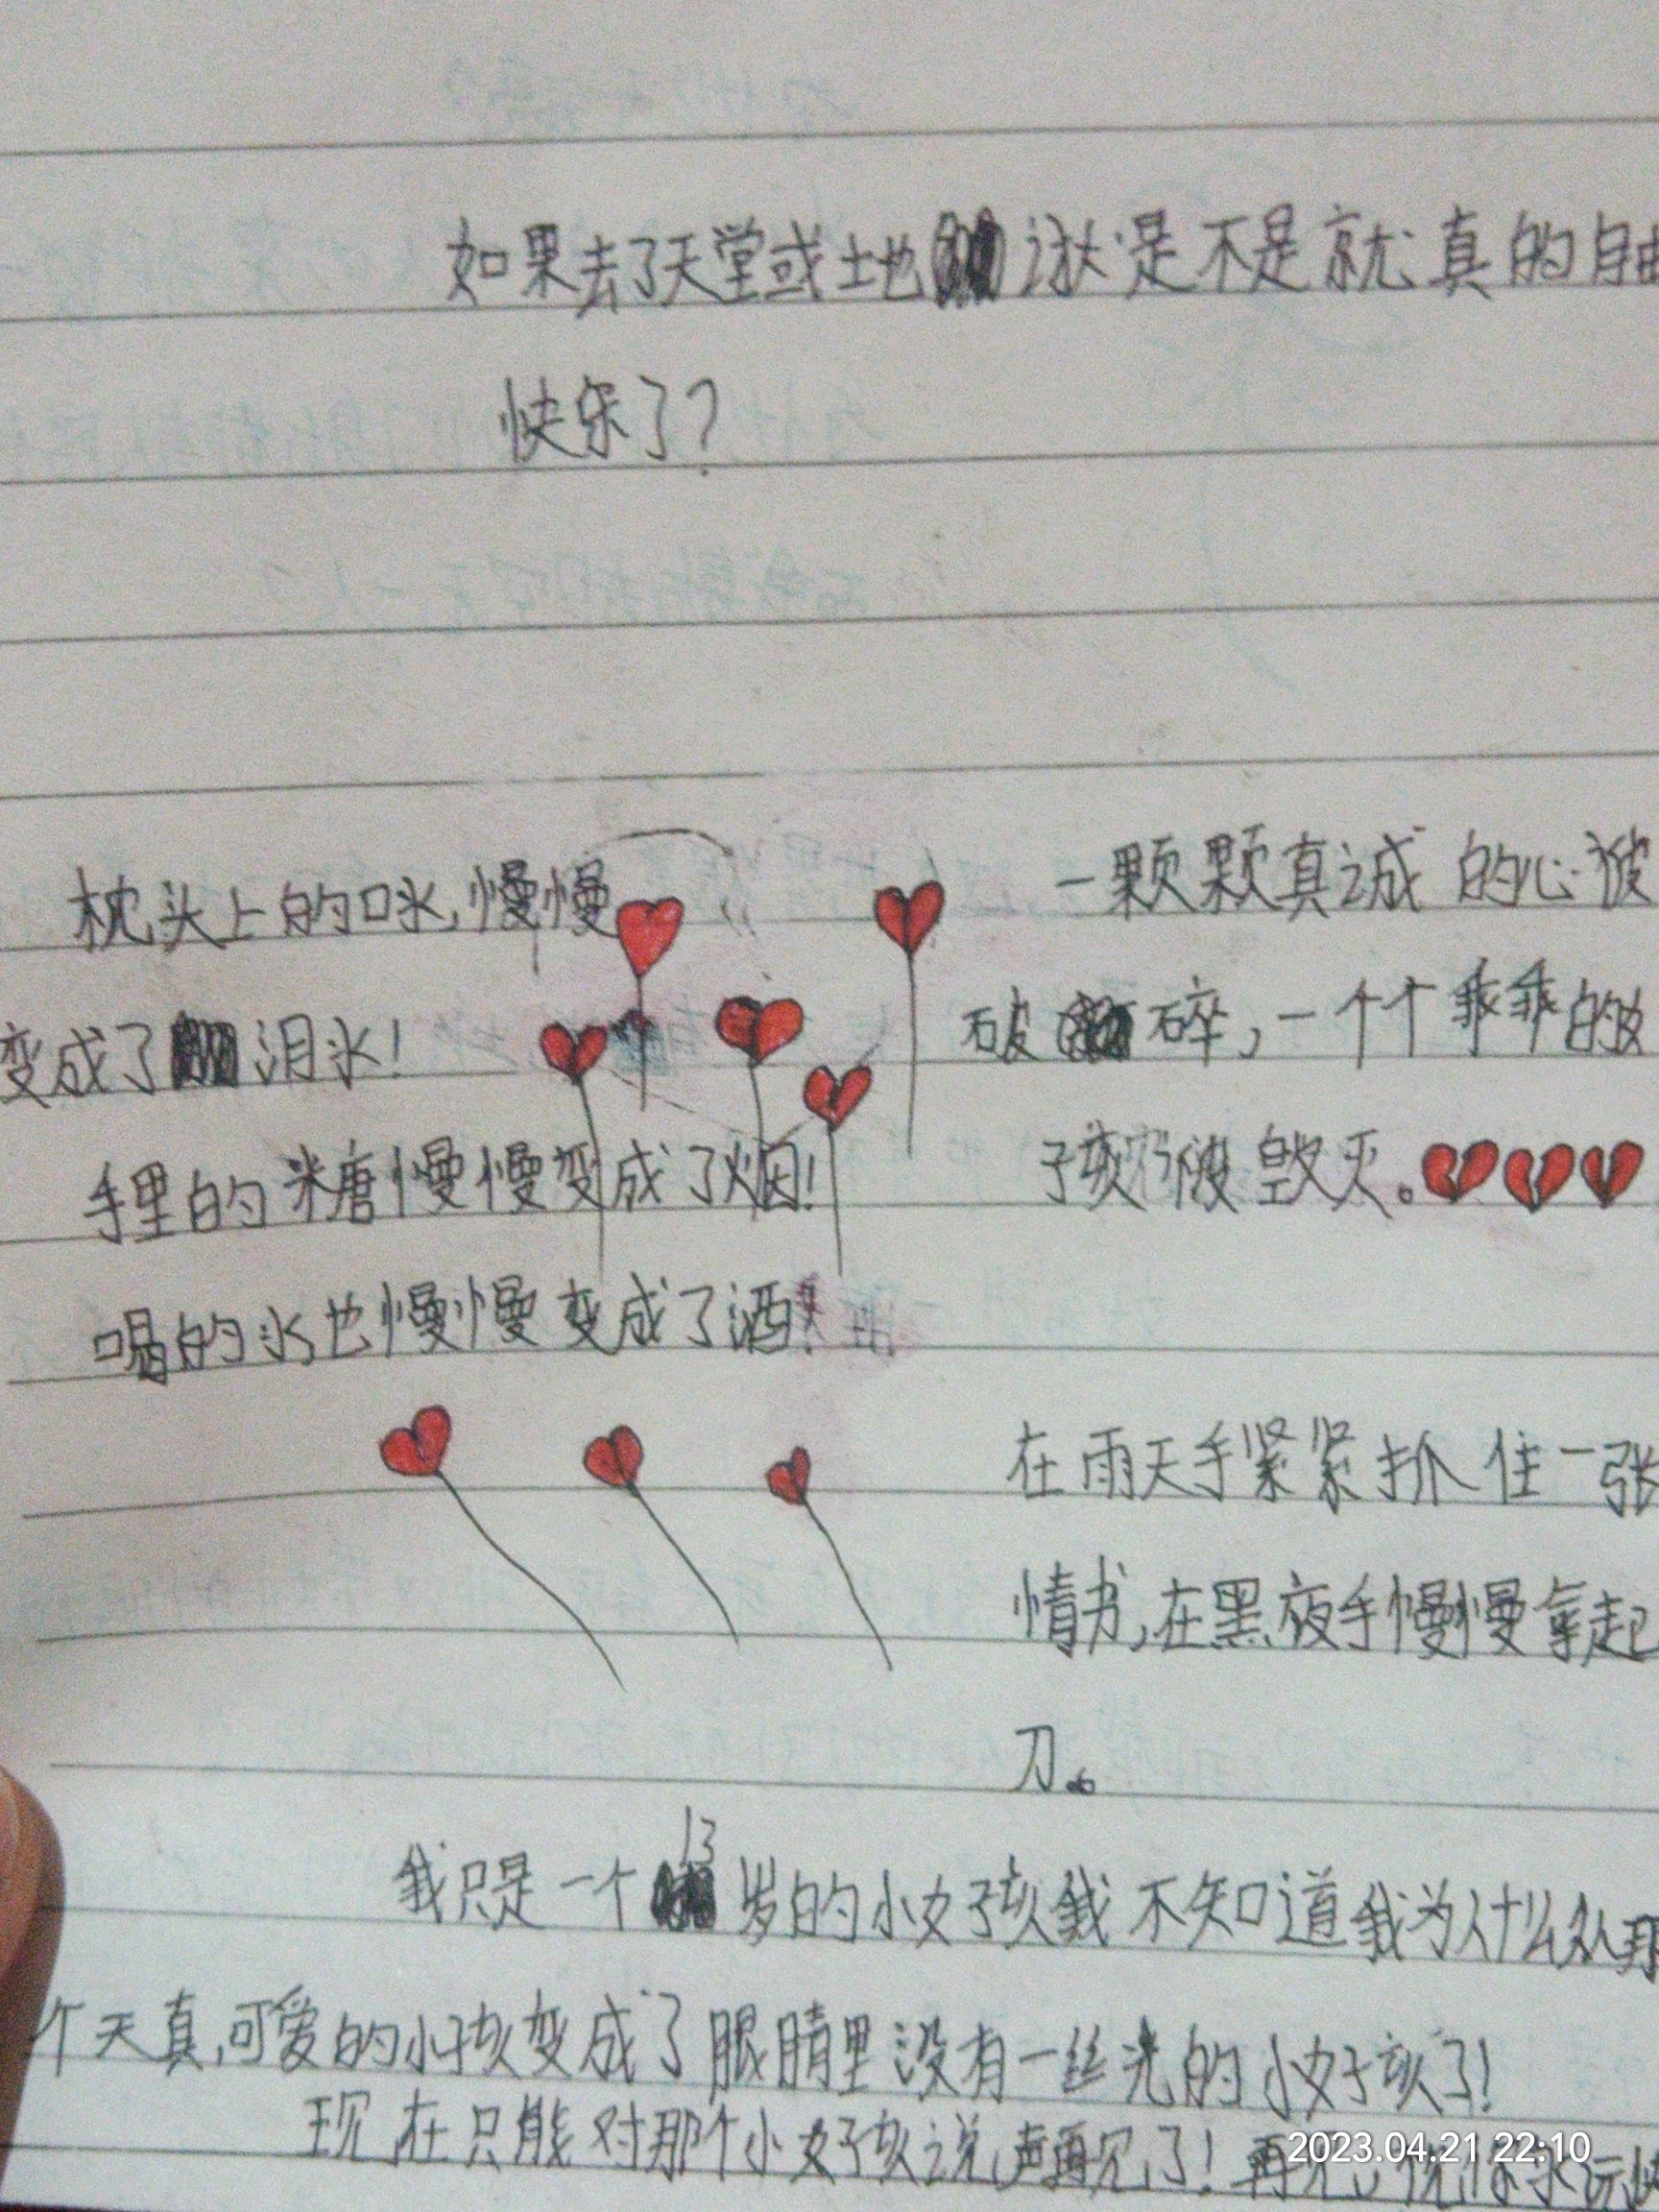 如果去了天堂或地狱是不是就真的自由
快乐了?
枕头上的口水,慢慢
变成了泪水!
手里的糖慢慢变成了烟!
喝的水也慢慢变成了酒!
一颗颗真诚的心被
破碎,一个个乖乖的女
子孩被毁灭。
在雨天手紧紧抓住一张
情书,在黑夜手慢慢拿起
刀。
我只是一个13岁的小女孩我不知道我为什么从那
个天真,可爱的小孩变成了眼睛里没有一丝光的小女孩了!
现在只能对那个小女孩说声再见了!再见
2023.04.21 22:10